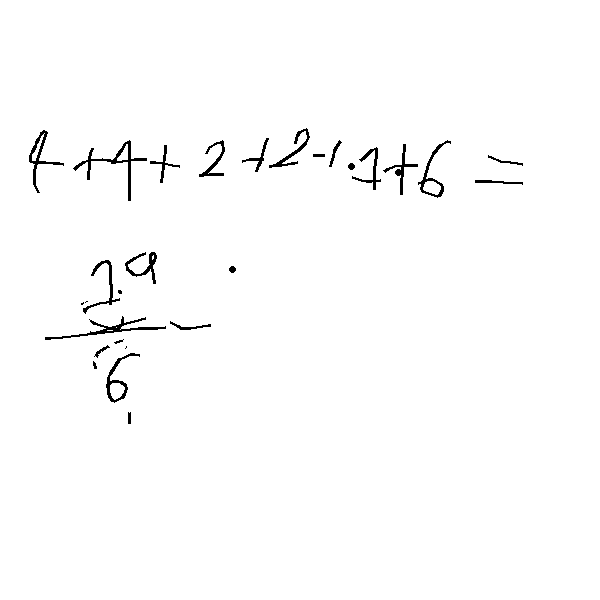 4+4+2+2-1·1+6=
19
6